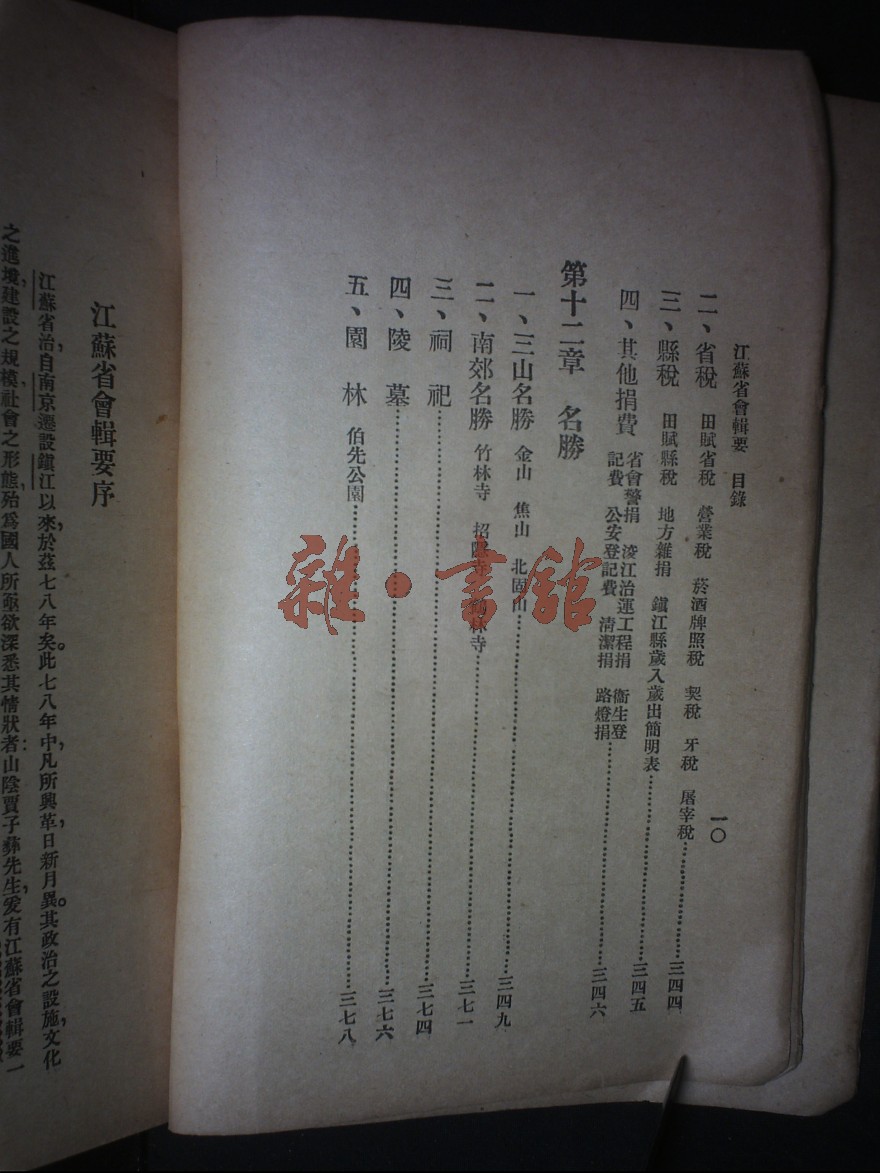 江蘇省會輯要 目錄
一〇
二、省稅 田賦省稅 營業稅 菸酒牌照稅 契稅 牙稅 屠宰稅……三四四
三、縣稅 田賦縣稅 地方雜捐 鎭江縣歲入歲出簡明表……三四五
四、其他捐費 省會警捐 浚江治運工程捐 衞生登
記費 公安登記費 淸潔捐 路燈捐……三四六
第十二章 名勝
一、三山名勝 金山 焦山 北固山……三四九
二、南郊名勝 竹林寺 招隱寺 鶴林寺……三七一
三、祠祀……三七四
四、陵墓……三七六
五、園林 伯先公園……三七八
雜·書館
江蘇省會輯要序
江蘇省治，自南京遷設鎭江以來，於茲七八年矣。此七八年中，凡所興革，日新月異。其政治之設施，文化
之進境，建設之規模，社會之形態，殆爲國人所亟欲深悉其情狀者：山陰賈子彝先生，爰有江蘇省會輯要一